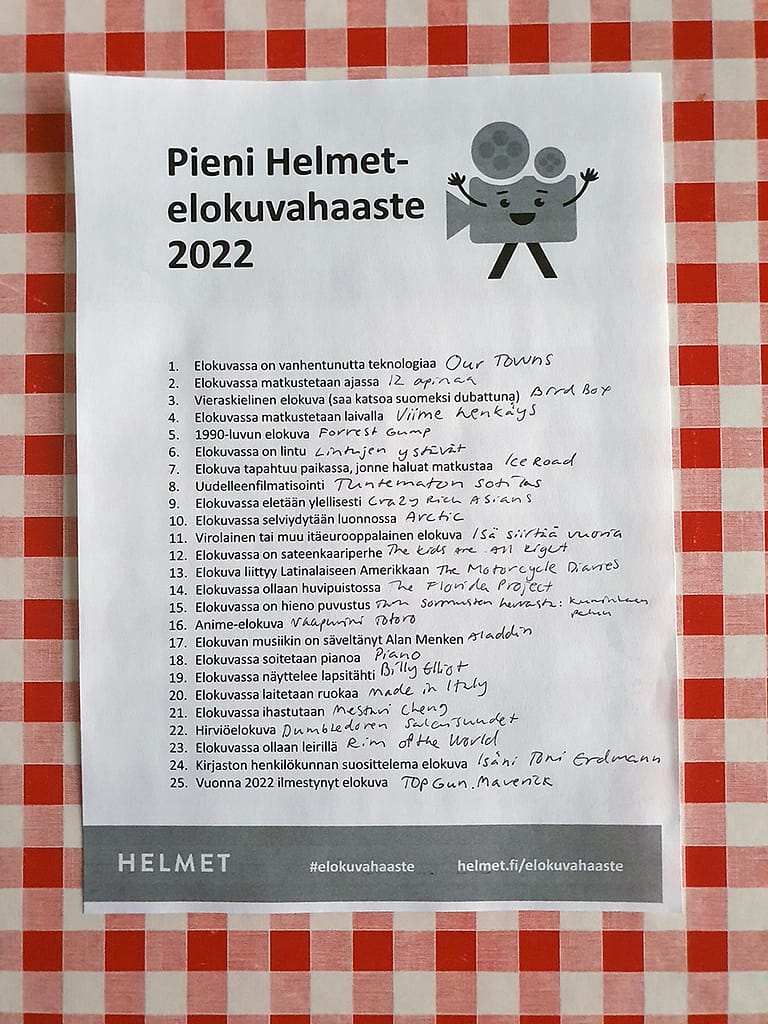 Pieni Helmet-
elokuvahaaste
2022
1. Elokuvassa on vanhentunutta teknologiaa Our Towns
2. Elokuvassa matkustetaan ajassa 12 apinaa
3. Vieraskielinen elokuva (saa katsoa suomeksi dubattuna) Bird Box
4. Elokuvassa matkustetaan laivalla Viime henkäys
5. 1990-luvun elokuva Forrest Gump
6. Elokuvassa on lintu Lintujen ystävät
7. Elokuva tapahtuu paikassa, jonne haluat matkustaa Ice Road
8. Uudelleenfilmatisointi Tuntematon sotilas
9. Elokuvassa eletään ylellisesti Crazy Rich Asians
10. Elokuvassa selviydytään luonnossa Arctic
11. Virolainen tai muu itäeurooppalainen elokuva Isä siirtää vuoria
12. Elokuvassa on sateenkaariperhe The Kids Are All Right
13. Elokuva liittyy Latinalaiseen Amerikkaan The Motorcycle Diaries
14. Elokuvassa ollaan huvipuistossa The Florida Project
15. Elokuvassa on hieno puvustus Taru Sormusten herrasta: Kuninkaan
paluu
16. Anime-elokuva Naapurini Totoro
17. Elokuvan musiikin on säveltänyt Alan Menken Aladdin
18. Elokuvassa soitetaan pianoa Piano
19. Elokuvassa näyttelee lapsitähti Billy Elliot
20. Elokuvassa laitetaan ruokaa Made in Italy
21. Elokuvassa ihastutaan Mestari Cheng
22. Hirviöelokuva Dumbledoren Salaisuudet
23. Elokuvassa ollaan leirillä Rim of the World
24. Kirjaston henkilökunnan suosittelema elokuva Isäni Toni Erdmann
25. Vuonna 2022 ilmestynyt elokuva TOP Gun. Maverick
HELMET #elokuvahaaste helmet.fi/elokuvahaaste